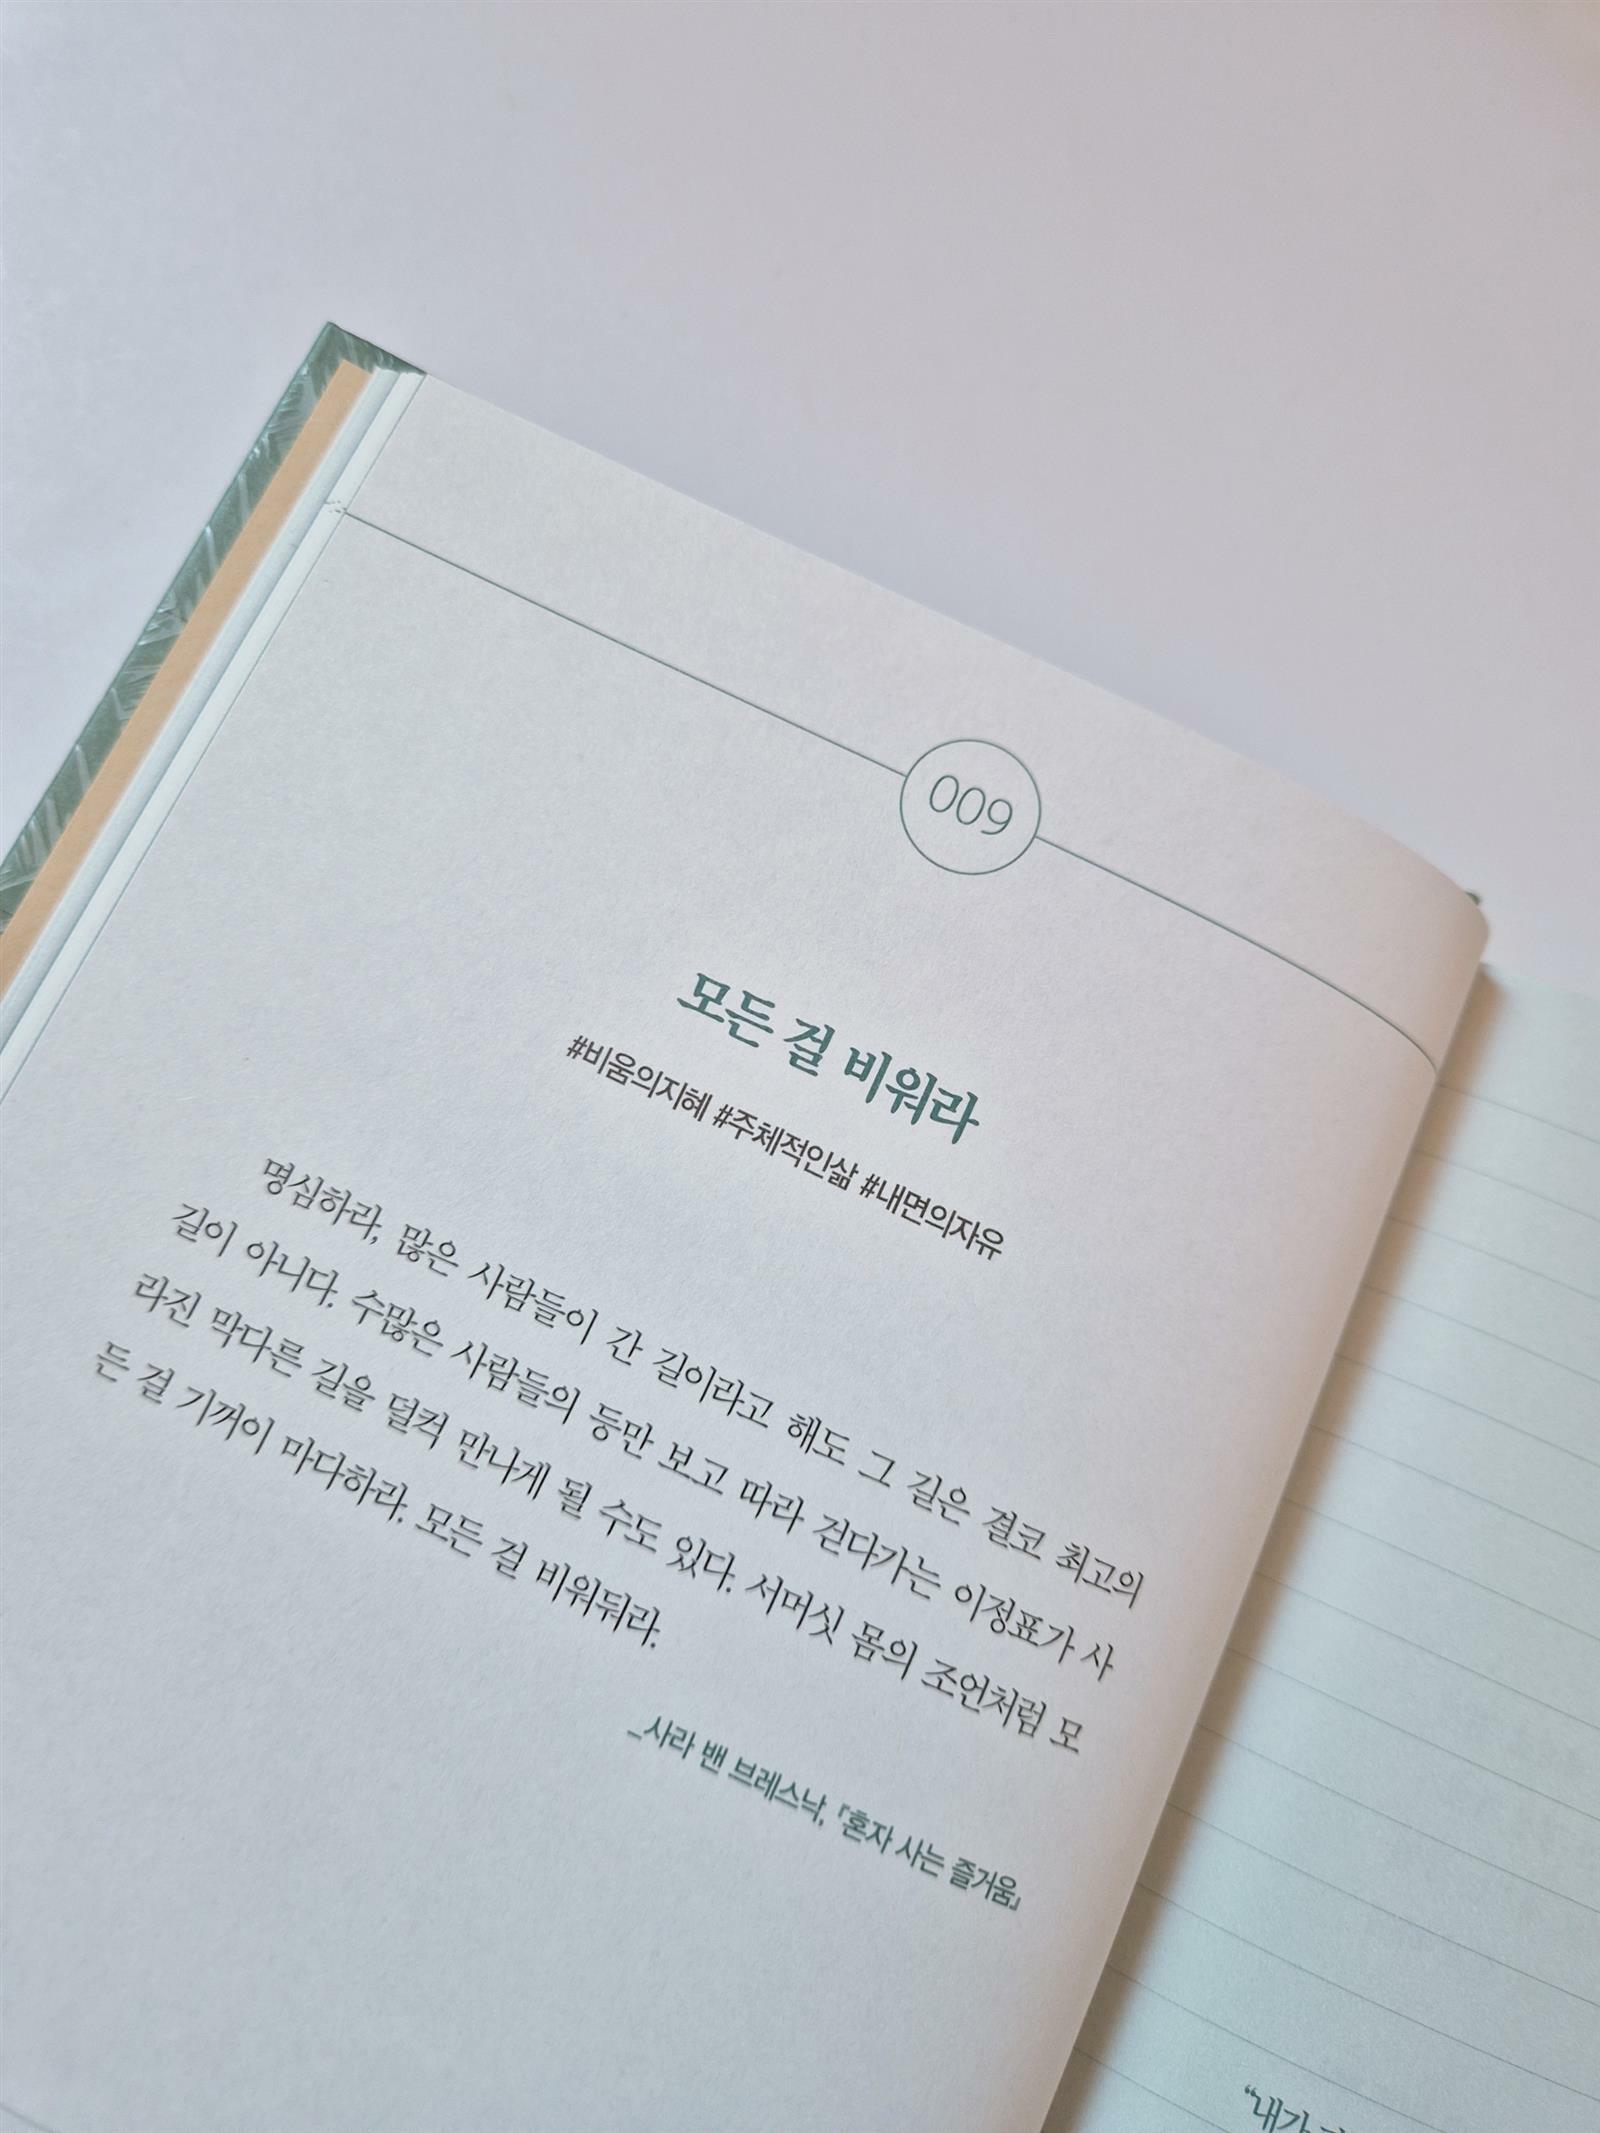 009
모든 걸 비워라
#비움의지혜 #주체적인삶 #내면의자유
명심하라, 많은 사람들이 간 길이라고 해도 그 길은 결코 최고의
길이 아니다. 수많은 사람들의 등만 보고 따라 걷다가는 이정표가 사
라진 막다른 길을 덜컥 만나게 될 수도 있다. 서머싯 몸의 조언처럼 모
든 걸 기꺼이 마다하라. 모든 걸 비워둬라.
_사라 밴 브레스낙, 『혼자 사는 즐거움』
“내가